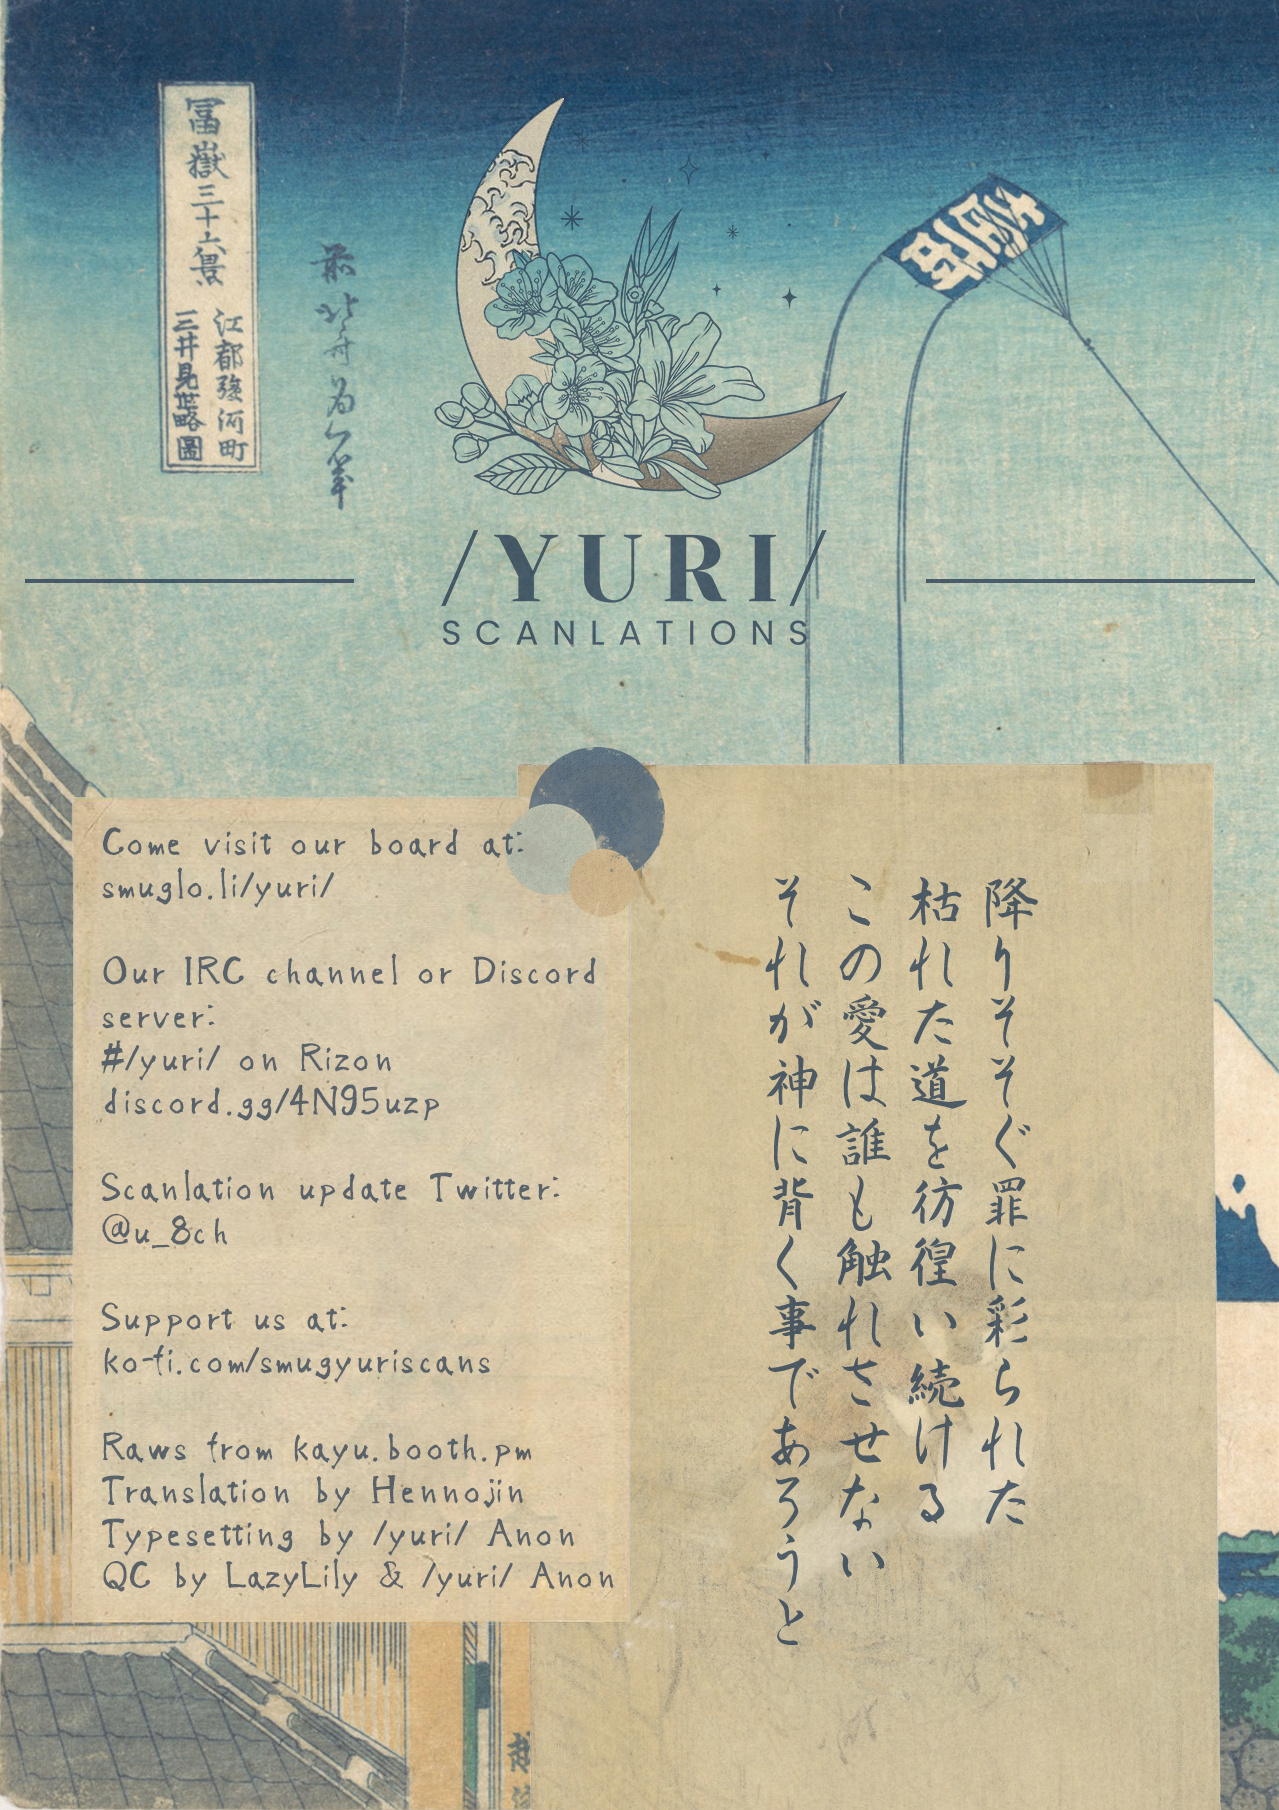 冨嶽三十六景
江都駿河町
三井見世略圖
前北斎為一筆
壽
/YURI/
SCANLATIONS
Come visit our board at:
smuglo.li/yuri/
Our IRC channel or Discord
server:
#/yuri/ on Rizon
discord.gg/4N95uzp
Scanlation update Twitter:
@u_8ch
Support us at:
ko-fi.com/smugyuriscans
Raws from kayu.booth.pm
Translation by Hennojin
Typesetting by /yuri/ Anon
QC by LazyLily & /yuri/ Anon
降りそそぐ罪に彩られた
枯れた道を彷徨い続ける
この愛は誰も触れさせない
それが神に背く事であろうと